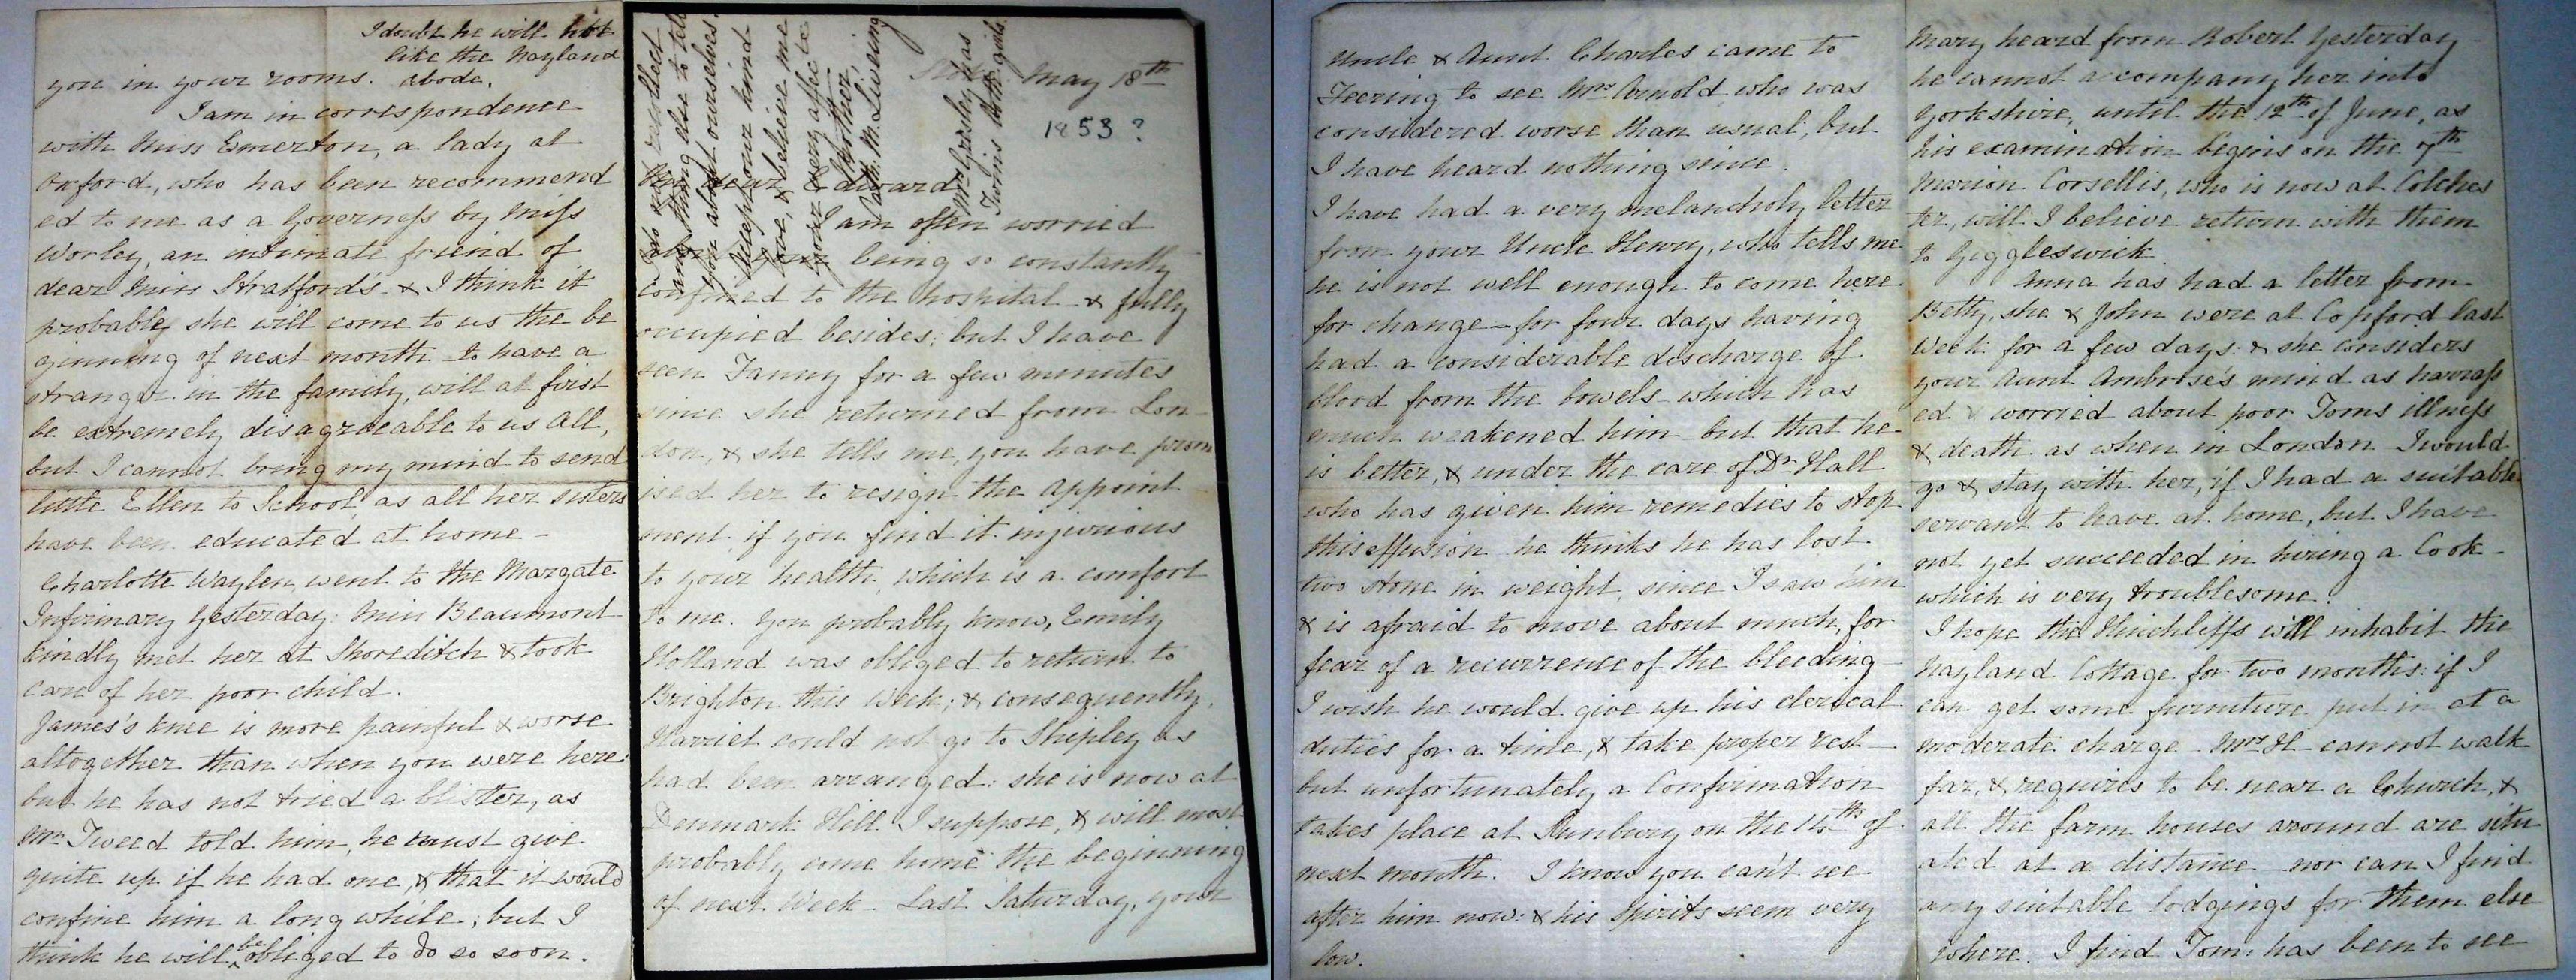 Stoke May 18th
1853?
My dear Edward
I am often worried
about your being so constantly
confined to the hospital & fully
occupied besides: but I have
seen Fanny for a few minutes
since she returned from Lon-
don, & she tells me, you have prom
ised her to resign the appoint
ment if you find it injurious
to your health, which is a comfort
to me. You probably know, Emily
Holland was obliged to return to
Brighton this week, & consequently,
Harriet could not go to Shipley as
had been arranged: she is now at
Denmark Hill I suppose, & will most
probably come home the beginning
of next Week. Last Saturday, your
Uncle & Aunt Charles came to
Feering to see Mrs Arnold, who was
considered worse than usual, but
I have heard nothing since.
I have had a very melancholy letter
from your Uncle Henry, who tells me
he is not well enough to come here
for change - for four days having
had a considerable discharge of
blood from the bowels which has
much weakened him - but that he
is better, & under the care of Dr Hall
who has given him remedies to stop
this effusion he thinks he has lost
two stone in weight, since I saw him
& is afraid to move about much, for
fear of a recurrence of the bleeding -
I wish he would give up his clerical
duties for a time, & take proper rest -
but unfortunately a Confirmation
takes place at Runbury on the 14th of
next month. I know you can't see
after him now: & his spirits seem very
low.
Mary heard from Robert yesterday
he cannot accompany her into
Yorkshire, until the 12th of June, as
his examination begins on the 7th
Marion Corsellis, who is now at Colches
ter, will I believe return with them
to Giggleswick.
Anna has had a letter from
Betty, she & John were at Copford last
week for a few days: & she considers
your Aunt Ambrose's mind as harrass
ed & worried about poor Toms illness
& death as when in London - I would
go & stay with her, if I had a suitable
servant to leave at home, but I have
not yet succeeded in hiring a Cook -
which is very troublesome.
I hope the Hinchliffs will inhabit the
Nayland Cottage for two months: if I
can get some furniture put in at a
moderate charge - Mrs H - cannot walk
far, & requires to be near a Church, &
all the farm houses around are situ
ated at a distance - nor can I find
any suitable lodgings for them else
where. I find Tom has been to see
you in your rooms.
I doubt he will not
like the Nayland
abode.
I am in correspondence
with Miss Emerton, a lady at
Oxford, who has been recommend
ed to me as a Governess by Miss
Worley, an intimate friend of
dear Miss Strafford's - & I think it
probable she will come to us the be
ginning of next month - to have a
stranger in the family, will at first
be extremely disagreeable to us all,
but I cannot bring my mind to send
little Ellen to School, as all her sisters
have been educated at home -
Charlotte Waylen went to the Margate
Infirmary yesterday: Miss Beaumont
kindly met her at Shoreditch & took
care of her poor child.
James's knee is more painful & worse
altogether than when you were here:
but he has not tried a blister, as
Mr Tweed told him, he must give
quite up if he had one, & that it would
confine him a long while; but I
think he will be obliged to do so soon.
I do not recollect
any thing else to tell
you about ourselves.
Accept our kind
love, & believe me
your very affecte
Mother,
Cath. M. Livering
Mrs Grisley has
Twins both girls.